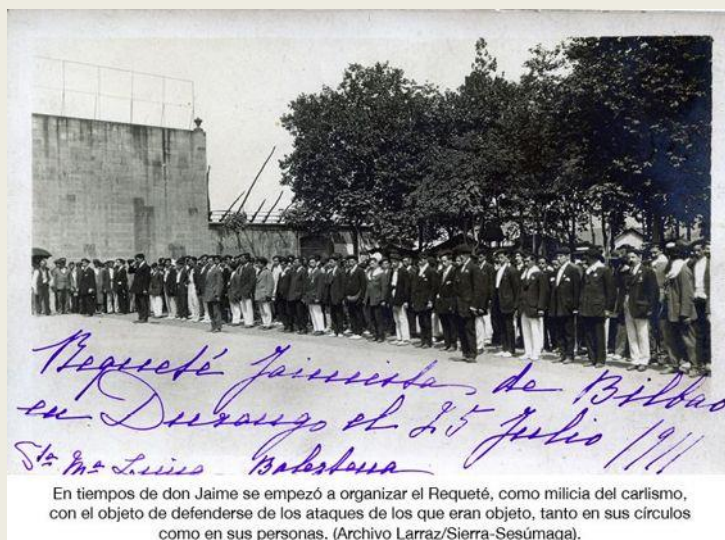 Requeté Jaimista de Bilbao
en Durango el 25 Julio 1911
Sta Mª Luisa Balestena
En tiempos de don Jaime se empezó a organizar el Requeté, como milicia del carlismo,
con el objeto de defenderse de los ataques de los que eran objeto, tanto en sus círculos
como en sus personas. (Archivo Larraz/Sierra-Sesúmaga).